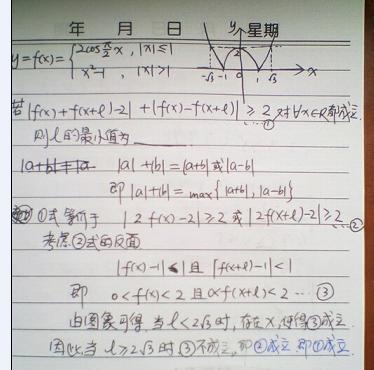 年 月 日 星期
y=f(x)={2cos π/2 x, |x|≤1
x²-1, |x|>1
y
2
-√3 -1 0 1 √3 x
若|f(x)+f(x+l)-2|+|f(x)-f(x+l)|≥2 对∀x∈R都成立.
①
则l的最小值为
|a|+|b|=|a+b|或|a-b|
即|a|+|b|=max{|a+b|,|a-b|}
①式等价于 |2f(x)-2|≥2或|2f(x+l)-2|≥2 ②
考虑②式的反面
|f(x)-1|<1且|f(x+l)-1|<1
即 0<f(x)<2且0<f(x+l)<2 … ③
由图象可得,当l<2√3时,存在x,使得③成立.
因此,当l≥2√3时,③不成立,即②成立,即①成立.